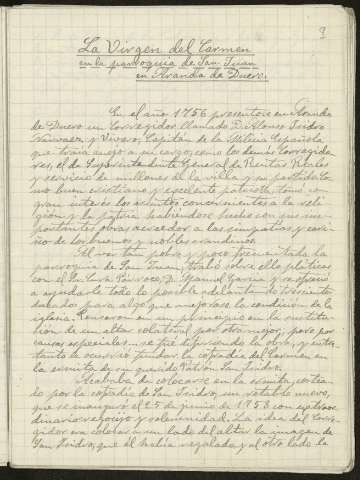 9
La Virgen del Carmen
en la parroquia de San Juan
en Aranda de Duero.
En el año 1756 presentose en Aranda
de Duero un Corregidor llamado D. Alonso Isidro
Narvaez y Vivero, Capitán de la Milicia Española,
que traía anejo a su cargo, como los demás Corregido-
res, el de Superintendente General de Rentas Reales
y servicio de millones de la villa y su partido. Co-
mo buen cristiano y excelente patriota, tomó con
gran interés los asuntos concernientes a la reli-
gión y la patria haciéndose hecho con sus im-
portantes obras acreedor a las simpatías y cari-
ño de los buenos y nobles arandinos.
Al ver tan pobre y poco frecuentada la
parroquia de San Juan, trabó sobre ello pláticas
con el Sr. Cura Párroco, D. Manuel García y se ofreció
a ayudarle todo lo posible adelantando trescientos
ducados para algo que mejorase la condición de la
iglesia. Pensaron en un principio en la sustitu-
ción de un altar colateral por otro mejor, pero por
causas especiales... se fue difiriendo la obra, y entre
tanto le ocurrió fundar la cofradía del Carmen en
la ermita de su querido Patrón San Isidro.
Acababa de colocarse en la ermita, costea-
do por la cofradía de San Isidro, un retablo nuevo,
que se inauguró el 25 de junio de 1758 con extraor-
dinario regocijo y solemnidad. La idea del Corre-
gidor era colocar a un lado del altar la imagen de
San Isidro, que él había regalado y al otro lado la